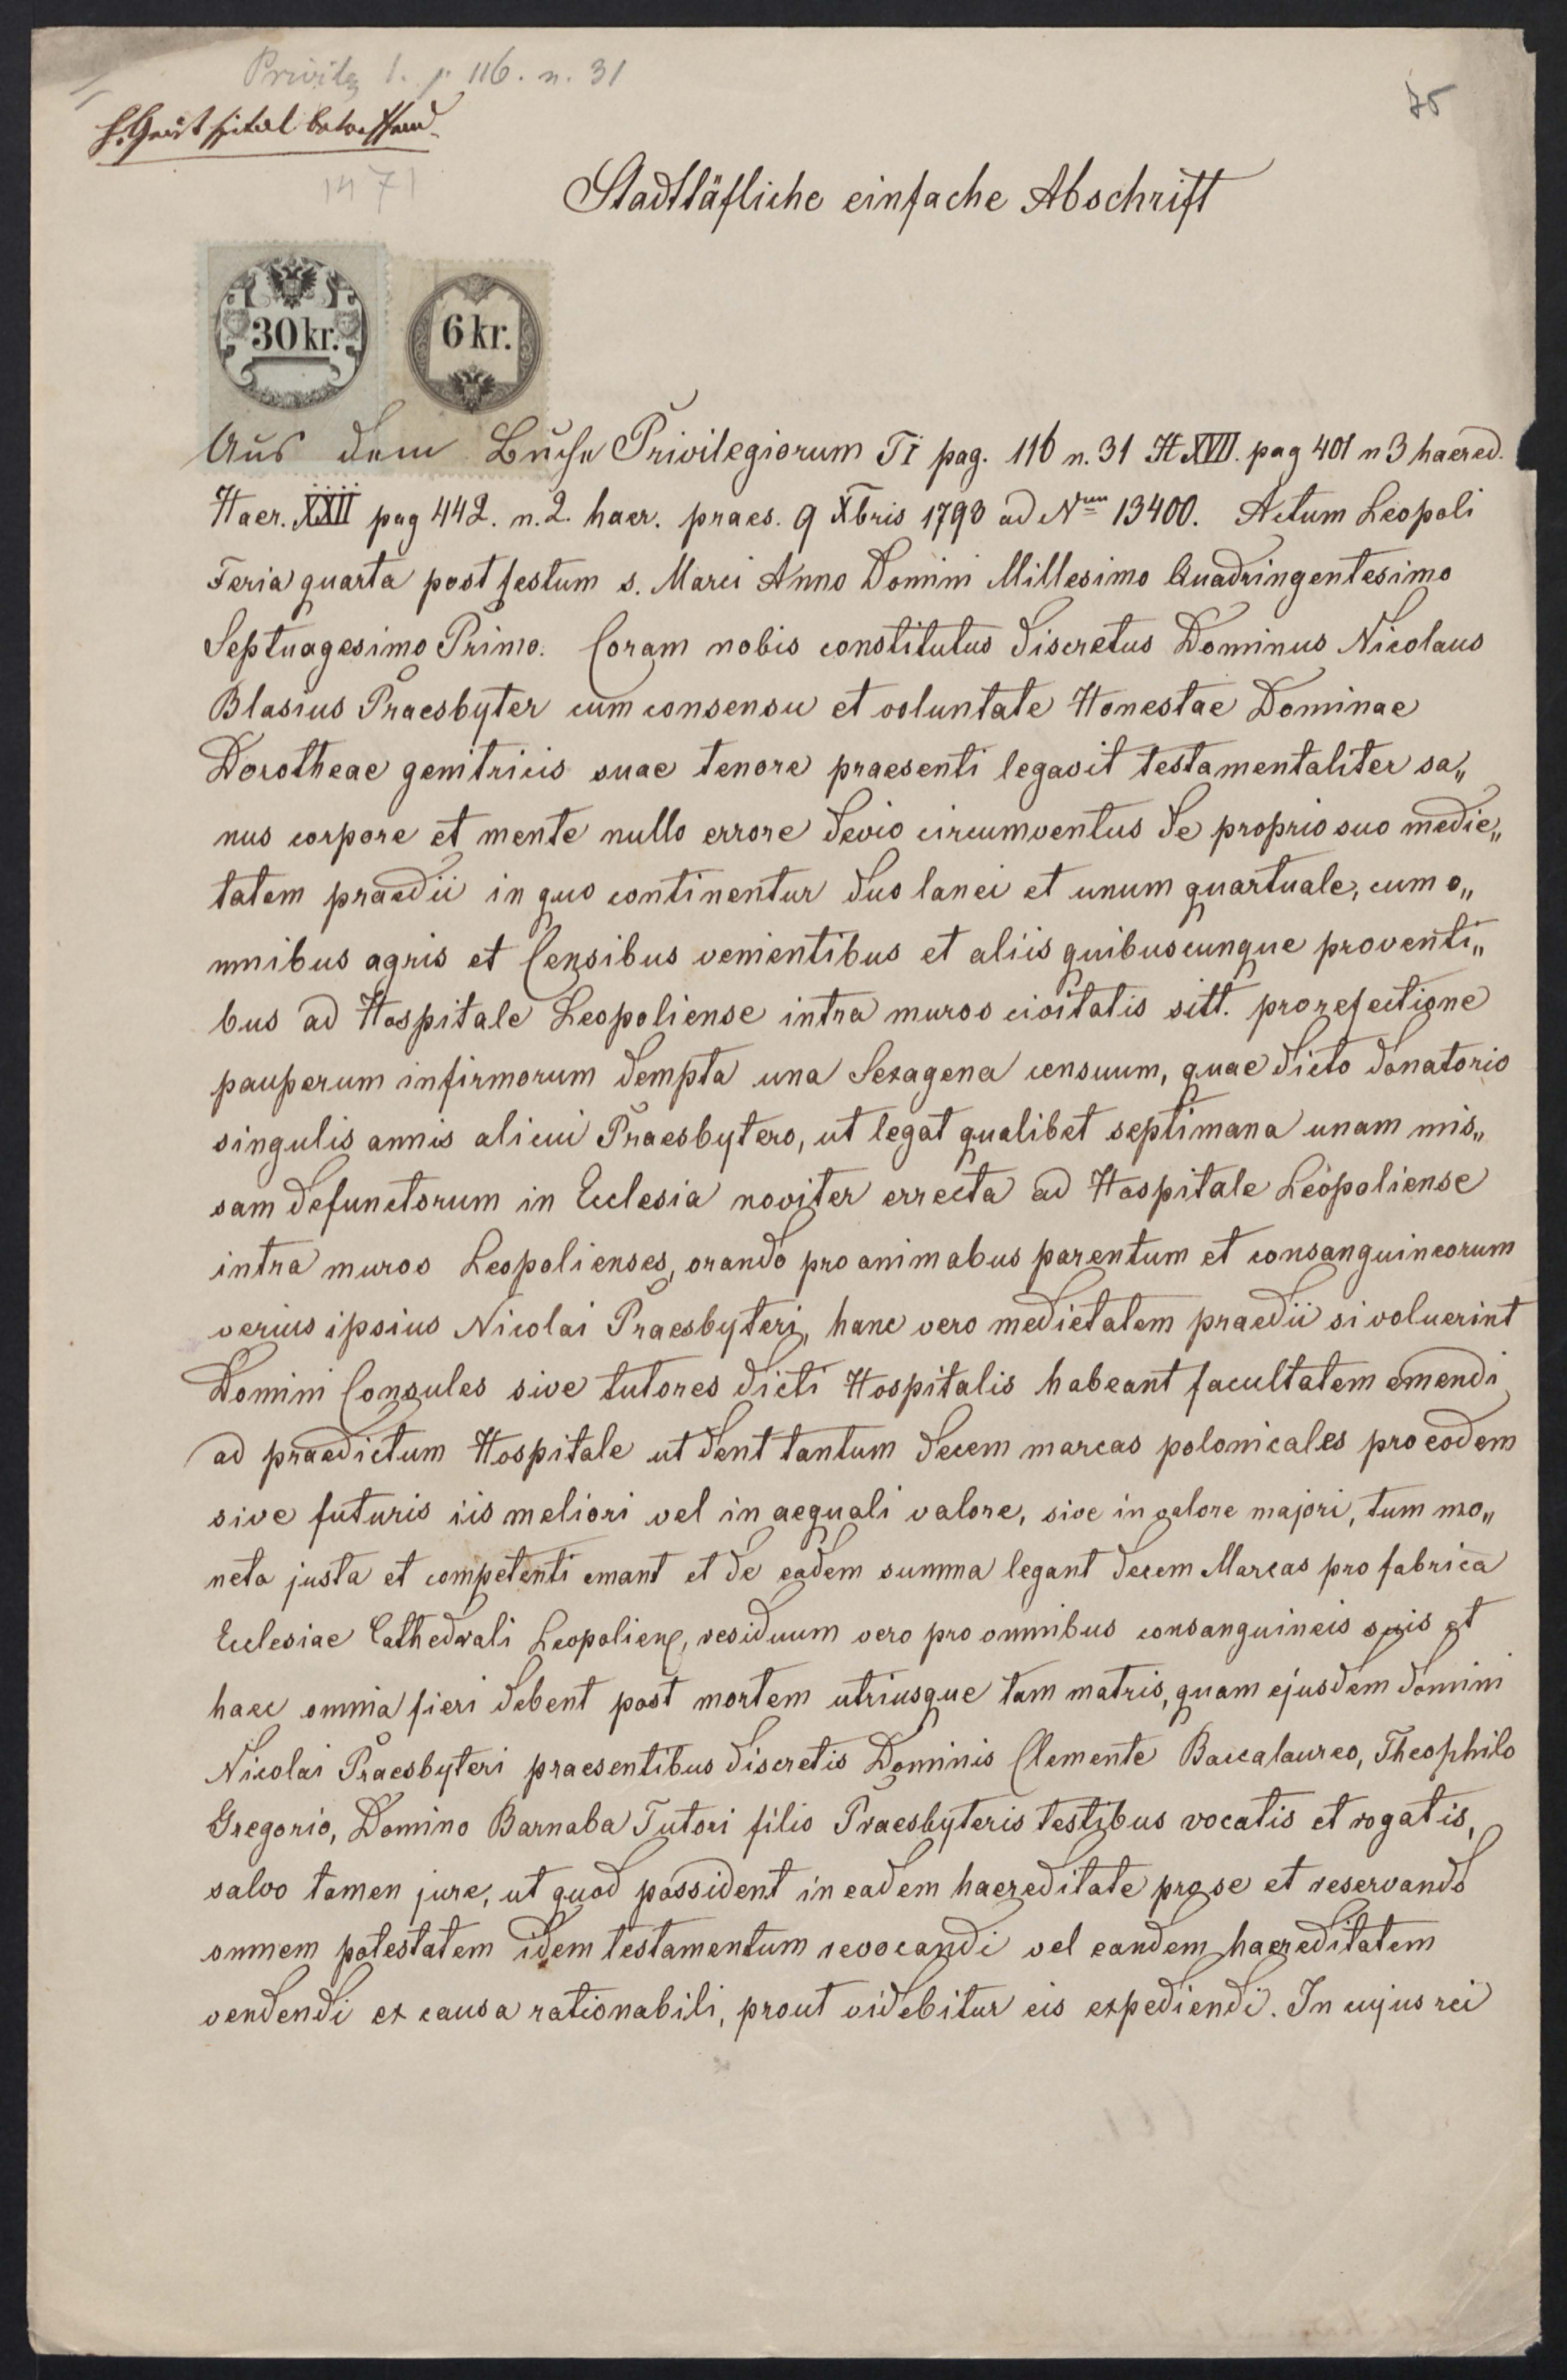 Privileg 1. p. 116. n. 31
75
H. Geist spital betreffend
1471
Stadttäfliche einfache Abschrift
30 kr. 6 kr.
Aus dem Buche Privilegiorum Ti pag. 116 n. 31 H XVII. pag 401 n 3 haered.
Haer. XXII pag 442. n. 2. haer. praes. 9 Xbris 1793 ad Num 13400. Actum Leopoli
Feria quarta post festum s. Marci Anno Domini Millesimo Quadringentesimo
Septuagesimo Primo. Coram nobis constitutus discretus Dominus Nicolaus
Blasius Praesbyter cum consensu et voluntate Honestae Dominae
Dorotheae genitricis suae tenore praesenti legavit testamentaliter sa„
nus corpore et mente nullo errore devio circumventus de proprio suo medie„
tatem praedii in quo continentur duo lanei et unum quartuale, cum o„
mnibus agris et Censibus venientibus et aliis quibuscunque proventi„
bus ad Hospitale Leopoliense intra muros civitatis sitt. pro refectione
pauperum infirmorum dempta una Sexagena censuum, quae dicto donatorio
singulis annis alicui Praesbytero, ut legat qualibet septimana unam mis„
sam defunctorum in Ecclesia noviter errecta ad Hospitale Leopoliense
intra muros Leopolienses, orando pro animabus parentum et consanguineorum
verius ipsius Nicolai Praesbyteri, hanc vero medietatem praedii si voluerint
Domini Consules sive tutores dicti Hospitalis habeant facultatem emendi
ad praedictum Hospitale ut dent tantum decem marcas polonicales pro eodem
sive futuris iis meliori vel in aequali valore, sive in valore majori, tum mo„
neta justa et competenti emant et de eadem summa legant decem Marcas pro fabrica
Ecclesiae Cathedrali Leopolien, residuum vero pro omnibus consanguineis suis et
haec omnia fieri debent post mortem utriusque tam matris, quam ejusdem domini
Nicolai Praesbyteri praesentibus discretis Dominis Clemente Baccalaureo, Theophilo
Gregorio, Domino Barnaba Tutori filio Praesbyteris testibus vocatis et rogatis,
salvo tamen jure, ut quod possident in eadem haereditate pro se et reservando
omnem potestatem idem testamentum revocandi vel eandem haereditatem
vendendi ex causa rationabili, prout videbitur eis expediendi. In cujus rei